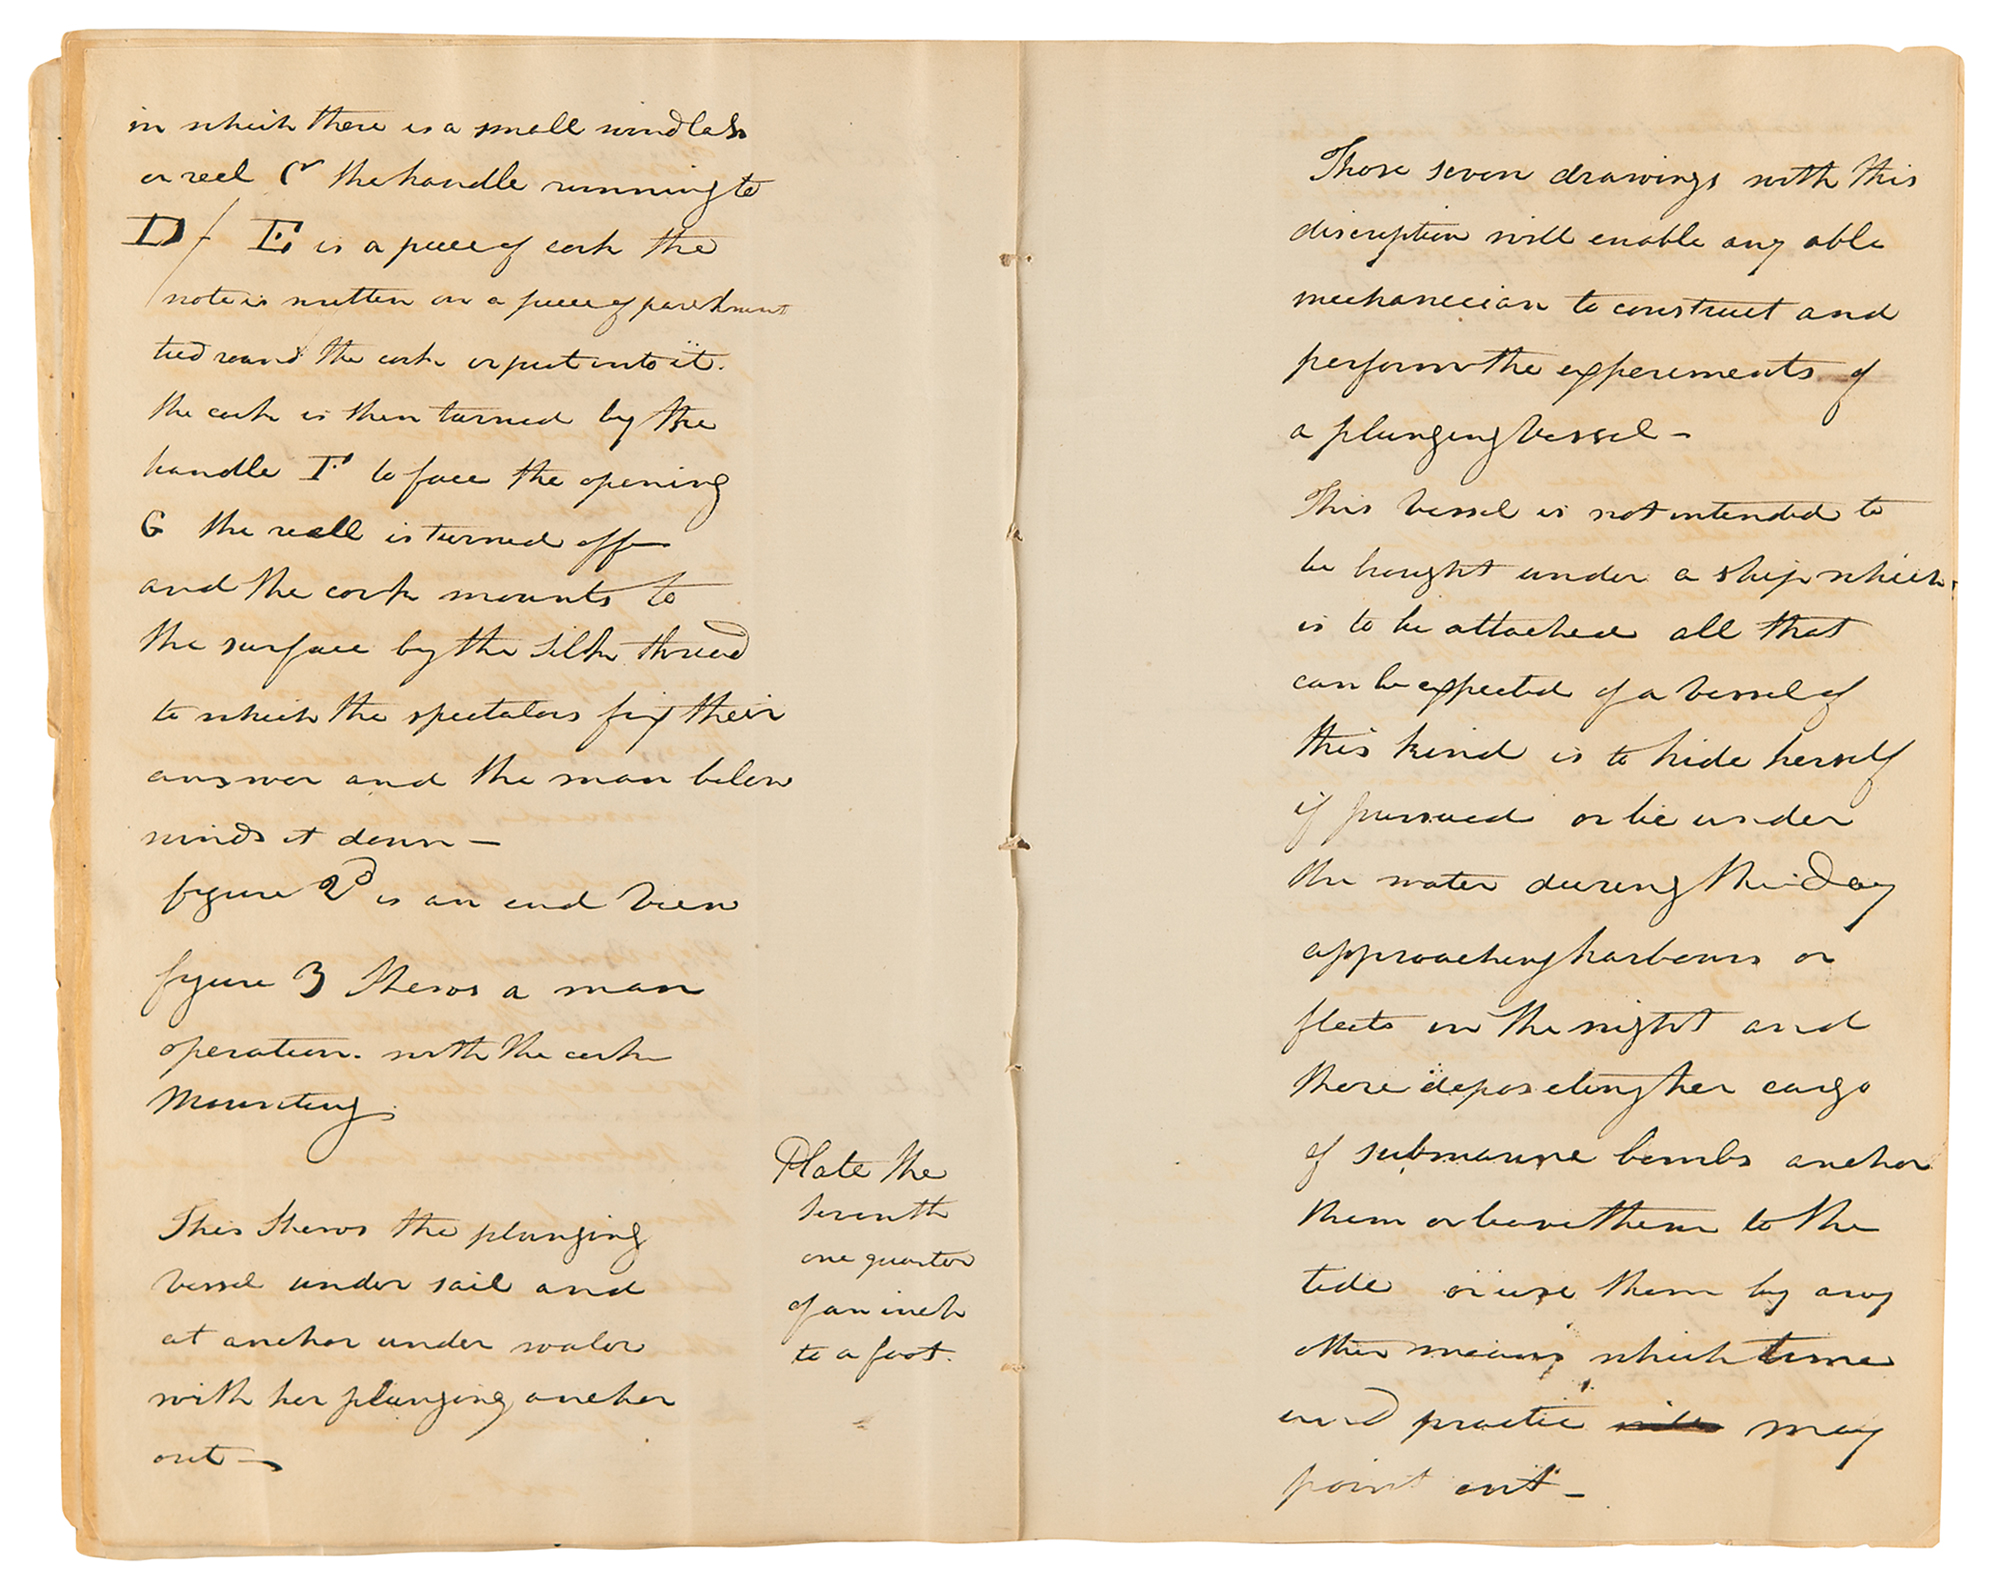 in which there is a small windlass
or reel C the handle running to
D / E is a piece of cork the
note is written on a piece of parchment
tied round the cork or put into it.
the cork is then turned by the
handle F to face the opening
G the reell is turned off
and the cork mounts to
the surface by the silk thread
to which the spectators fix their
answer and the man below
winds it down —
figure 2d is an end view
figure 3 shews a man
operation. with the cork
Mounting.
This shews the plunging
vessel under sail and
at anchor under water
with her plunging anchor
out —
Plate the
seventh
one quarter
of an inch
to a foot.
These seven drawings with this
discription will enable any able
mechanician to construct and
perform the experements of
a plunging vessel —
This vessel is not intended to
be brought under a ship which
is to be attached all that
can be expected of a vessel of
this kind is to hide herself
if pursued or lie under
the water during the day
approaching harbours or
fleets in the night and
there depositing her cargo
of submarine bombs anchor
them or leave them to the
tide or use them by any
other means which time
and practice may
point out —